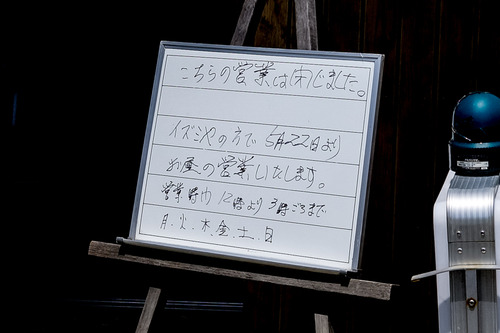 こちらの営業は閉じました。
イズミヤの方で 5月22日より
お昼の営業いたします。
営業時間 12時より 3時ごろまで
月.火.木.金.土.日